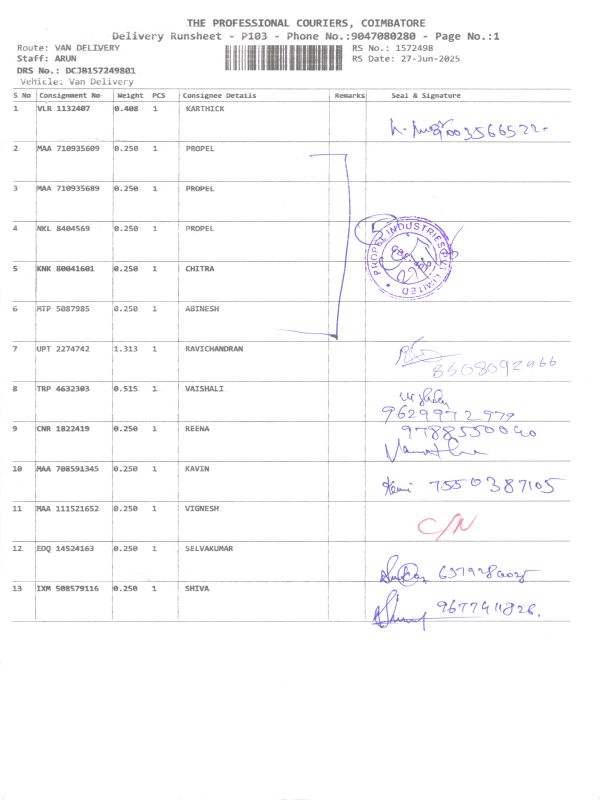 THE PROFESSIONAL COURIERS, COIMBATORE
Delivery Runsheet - P103 - Phone No.:9047080280 - Page No.:1
Route: VAN DELIVERY RS No.: 1572498
Staff: ARUN RS Date: 27-Jun-2025
DRS No.: DCJB157249801
Vehicle: Van Delivery
S No Consignment No Weight PCS Consignee Details Remarks Seal & Signature
1 VLR 1132407 0.408 1 KARTHICK
2 MAA 710935609 0.250 1 PROPEL
3 MAA 710935689 0.250 1 PROPEL
4 NKL 8404569 0.250 1 PROPEL
PROPEL INDUSTRIES PVT LIMITED
5 KNK 80041601 0.250 1 CHITRA
6 MTP 5087985 0.250 1 ABINESH
7 UPT 2274742 1.313 1 RAVICHANDRAN
8 TRP 4632303 0.515 1 VAISHALI
9629972979
9 CNR 1822419 0.250 1 REENA
9788550040
10 MAA 708591345 0.250 1 KAVIN
7550387105
11 MAA 111521652 0.250 1 VIGNESH
C/N
12 EDQ 14524163 0.250 1 SELVAKUMAR
13 IXM 508579116 0.250 1 SHIVA